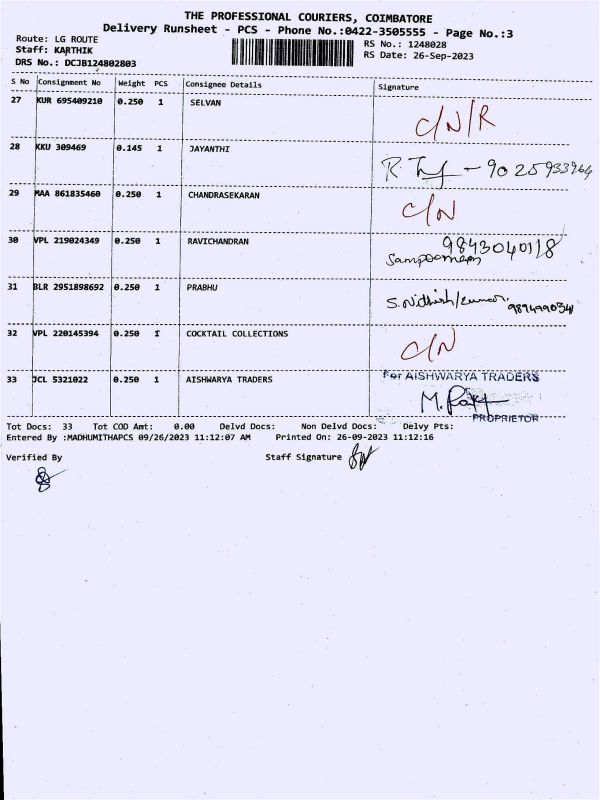 THE PROFESSIONAL COURIERS, COIMBATORE
Delivery Runsheet - PCS - Phone No.:0422-3505555 - Page No.:3
Route: LG ROUTE
Staff: KARTHIK
DRS No.: DCJB124802803
RS No.: 1248028
RS Date: 26-Sep-2023
S No Consignment No Weight PCS Consignee Details Signature
27 KUR 695409210 0.250 1 SELVAN C/N/R
28 KKU 309469 0.145 1 JAYANTHI R. - 9025933964
29 MAA 861835460 0.250 1 CHANDRASEKARAN C/N
30 VPL 219024349 0.250 1 RAVICHANDRAN 9843040118
31 BLR 2951898692 0.250 1 PRABHU
32 VPL 220145394 0.250 1 COCKTAIL COLLECTIONS C/N
33 JCL 5321022 0.250 1 AISHWARYA TRADERS
For AISHWARYA TRADERS
PROPRIETOR
Tot Docs: 33 Tot COD Amt: 0.00 Delvd Docs: Non Delvd Docs: Delvy Pts:
Entered By :MADHUMITHAPCS 09/26/2023 11:12:07 AM Printed On: 26-09-2023 11:12:16
Verified By Staff Signature